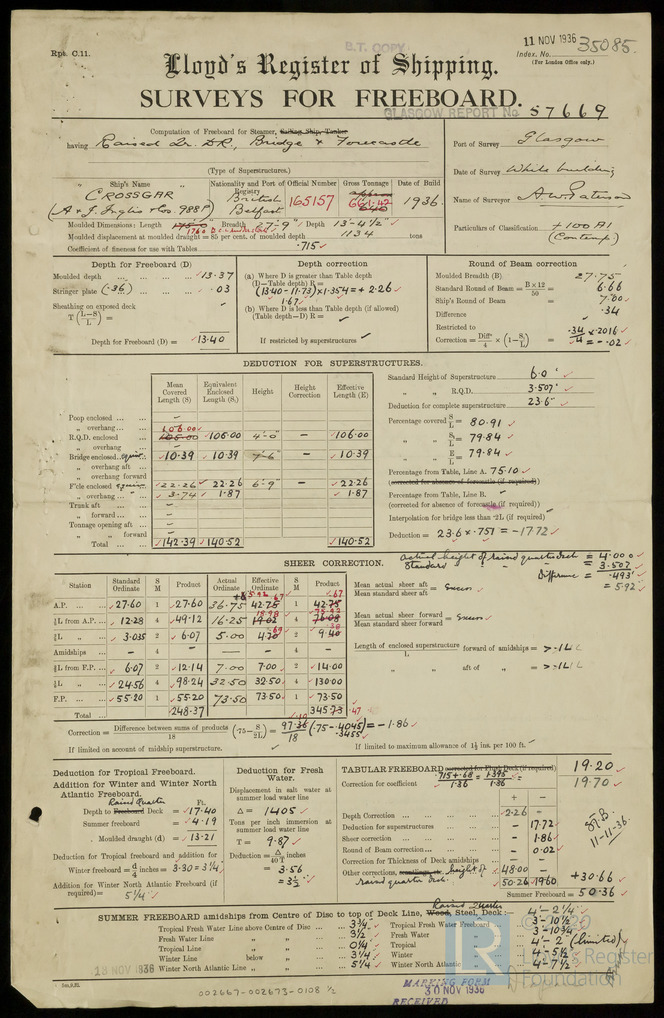 Rpt. C.11.
B.T. COPY
11 NOV 1936
Index. No. 35085.
(For London Office only.)
Lloyd's Register of Shipping.
SURVEYS FOR FREEBOARD.
GLASGOW REPORT No. 57669
Computation of Freeboard for Steamer, Sailing Ship, Tanker
having Raised Qr. Dk., Bridge & Forecastle
(Type of Superstructures.)
Port of Survey Glasgow
Date of Survey While building
Name of Surveyor A W Paterson
Particulars of Classification +100A1 (Contemp.)
Ship's Name
Nationality and Port of Registry
Official Number
Gross Tonnage
Date of Build
CROSSGAR
(A & J. Inglis & Co 988P)
British
Belfast
165157
1936.
Moulded Dimensions: Length 176.0 Breadth 27'-9" Depth 13'-4½"
Moulded displacement at moulded draught = 85 per cent. of moulded depth 1134 tons
Coefficient of fineness for use with Tables .715
Depth for Freeboard (D)
Moulded depth 13.37
Stringer plate (.36) .03
Sheathing on exposed deck
T (L−S/L) =
Depth for Freeboard (D) = 13.40
Depth correction
(a) Where D is greater than Table depth
(D−Table depth) R =
(13.40 - 11.73) × 1.354 = + 2.26
1.67
(b) Where D is less than Table depth (if allowed)
(Table depth−D) R =
If restricted by superstructures
Round of Beam correction
Moulded Breadth (B) 27.75
Standard Round of Beam = B×12/50 = 6.66
Ship's Round of Beam = 7.00
Difference .34
Restricted to
Correction = Diff/4 × (1−S₁/L) = .34/4 × .2016 = -.02
DEDUCTION FOR SUPERSTRUCTURES.
Mean Covered Length (S)
Equivalent Enclosed Length (S₁)
Height
Height Correction
Effective Length (E)
Poop enclosed
„ overhang
R.Q.D. enclosed 106.00 106.00 4'-0" — 106.00
„ overhang
Bridge enclosed 10.39 10.39 7'-6" — 10.39
„ overhang aft
„ overhang forward
F'cle enclosed 22.26 22.26 6'-9" — 22.26
„ overhang 3.74 1.87 1.87
Trunk aft
„ forward
Tonnage opening aft
„ „ forward
Total 142.39 140.52 140.52
Standard Height of Superstructure 6.0'
„ „ R.Q.D. 3.507'
Deduction for complete superstructure 23.6"
Percentage covered S/L = 80.91
„ „ S₁/L = 79.84
„ „ E/L = 79.84
Percentage from Table, Line A. 75.10
(corrected for absence of forecastle (if required))
Percentage from Table, Line B.
(corrected for absence of forecastle (if required))
Interpolation for bridge less than ·2L (if required)
Deduction = 23.6 × .751 = -17.72
SHEER CORRECTION.
Actual height of raised quarter deck = 4.000
Standard „ „ = 3.507
Difference = .493'
= 5.92"
Station
Standard Ordinate
S M
Product
Actual Ordinate
Effective Ordinate
S M
Product
A.P. 27.60 1 27.60 36.75 42.75 1 42.75
⅙L from A.P. 12.28 4 49.12 16.25 19.02 4 76.08
⅓L „ 3.035 2 6.07 5.00 4.70 2 9.40
Amidships — 4 — — — 4 —
⅓L from F.P. 6.07 2 12.14 7.00 7.00 2 14.00
⅙L „ 24.56 4 98.24 32.50 32.50 4 130.00
F.P. 55.20 1 55.20 73.50 73.50 1 73.50
Total 248.37 345.73
Mean actual sheer aft
Mean standard sheer aft = Excess
Mean actual sheer forward
Mean standard sheer forward = Excess
Length of enclosed superstructure forward of amidships = > .1L
L
„ aft of „ = > .1L
Correction = Difference between sums of products/18 (·75−S/2L) = 97.36/18 (.75-.4045) = -1.86
.3455
If limited on account of midship superstructure.
If limited to maximum allowance of 1½ ins. per 100 ft.
Deduction for Tropical Freeboard.
Addition for Winter and Winter North Atlantic Freeboard.
Ft.
Depth to Freeboard Deck = 17.40
Raised Quarter
Summer freeboard = 4.19
Moulded draught (d) = 13.21
Deduction for Tropical freeboard and addition for
Winter freeboard = d/4 inches = 3.30 = 3¼
Addition for Winter North Atlantic Freeboard (if required) = 5¼"
Deduction for Fresh Water.
Displacement in salt water at summer load water line
Δ = 1405
Tons per inch immersion at summer load water line
T = 9.87
Deduction = Δ/40 T inches
= 3.56
= 3½"
TABULAR FREEBOARD corrected for Flush Deck (if required) 19.20
Correction for coefficient .715+.68/1.36 = 1.395/1.36 19.70
+ −
Depth Correction 2.26 —
Deduction for superstructures — 17.72
Sheer correction — 1.86
Round of Beam correction — 0.02
Correction for Thickness of Deck amidships — —
Other corrections, height of raised quarter deck 48.00
50.26 19.60
+30.66
Summer Freeboard = 50.36
11-11-36.
SUMMER FREEBOARD amidships from Centre of Disc to top of Deck Line, Wood, Steel, Deck: 4'-2¼"
Raised Quarter
Tropical Fresh Water Line above Centre of Disc 3¾"
Fresh Water Line „ „ 3½"
Tropical Line „ „ 0¼"
Winter Line below „ 3¼"
Winter North Atlantic Line „ „ 5¼"
Tropical Fresh Water Freeboard 3'-10½"
Fresh Water „ 3'-10¾"
Tropical „ 4'-2" (limited)
Winter „ 4'-5½"
Winter North Atlantic „ 4'-7½"
13 NOV 1936
MARKING FORM
30 NOV 1936
RECEIVED
002667-002673-0108 ½
© 2020
LR
Lloyd's Register
Foundation